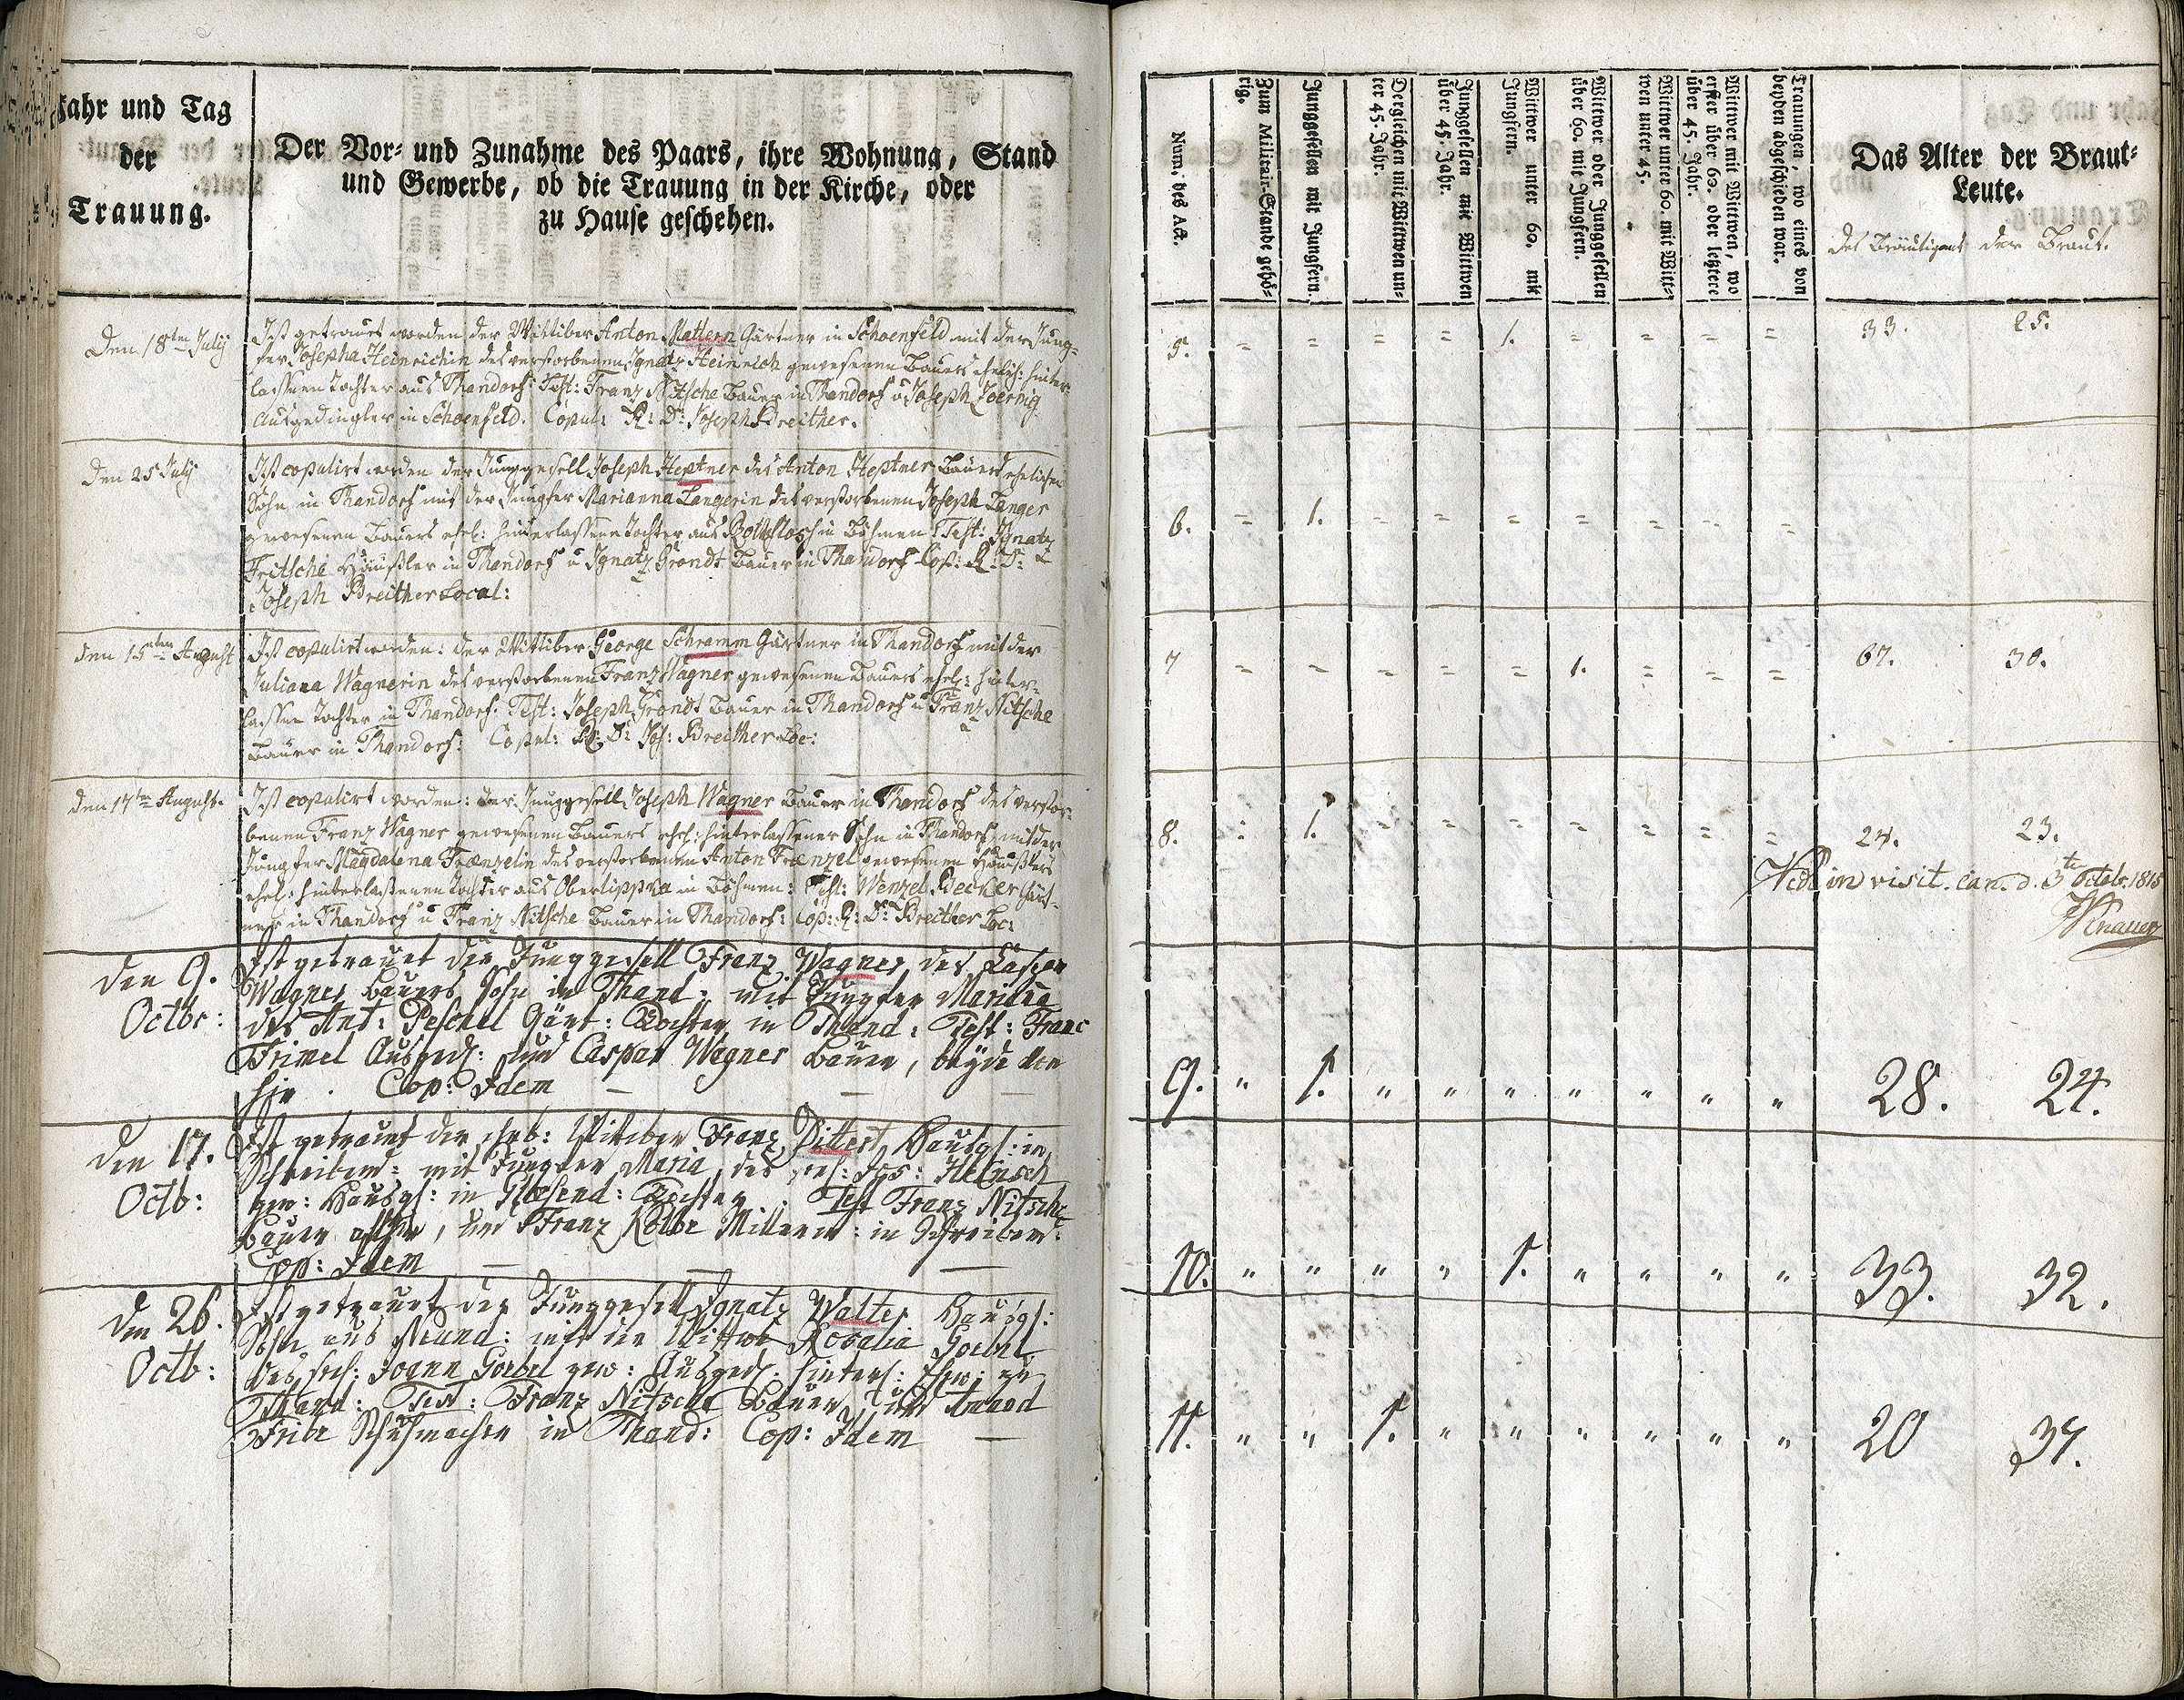 Jahr und Tag
der
Trauung.
Der Vor- und Zunahme des Paars, ihre Wohnung, Stand
und Gewerbe, ob die Trauung in der Kirche, oder
zu Hause geschehen.
Den 18ten July
Ist getrauet worden der Wittiber Anton Mattern Gärtner in Schoenfeld mit der Jung-
fer Josepha Heinrichin des verstorbenen Ignatz Heinrich gewesenen Bauers ehel: hinter-
lassenen Tochter aus Thandorf: Test: Franz Nitsche Bauer in Thandorf u Joseph Zoernig
Ausgedingler in Schoenfeld. Copul: R: D: Joseph Breither.
Den 25 July
Ist copulirt worden der Junggesell Joseph Heptner des Anton Heptner Bauers ehelicher
Sohn in Thandorf mit der Jungfer Marianna Langerin des verstorbenen Joseph Langer
gewesenen Bauers ehel: hinterlassene Tochter aus Rothfloss in Böhmen Test: Ignatz
Fritsche Häußler in Thandorf u Ignatz Grondt Bauer in Thandorf Cop: R: D:
Joseph Breither Local:
den 15ten August
Ist copulirt worden: der Wittiber George Schramm Gärtner in Thandorf mit der
Juliana Wagnerin des verstorbenen Franz Wagner gewesenen Bauers ehel: hinter-
lassene Tochter in Thandorf: Test: Joseph Grondt Bauer in Thandorf u Franz Nitsche
Bauer in Thandorf: Copul: R: D: Jos: Breither Loc:
den 17ten August.
Ist copulirt worden: der Junggesell Joseph Wagner Bauer in Thandorf des verstor-
benen Franz Wagner gewesenen Bauers ehel: hinterlassener Sohn in Thandorf mit der
Jungfer Magdalena Frænzelin des verstorbenen Anton Frænzel gewesenen Häußlers
ehel: hinterlaßenen Tochter aus Oberlippka in Böhmen: Test: Wenzel Becker Gärt-
ner in Thandorf u Franz Nitsche Bauer in Thandorf: Cop: R: D: Breither Loc:
den 9.
Octbr:
Ist getrauet der Junggesell Franz Wagner des Caspar
Wagner Bauers Sohn in Thand: mit Jungfer Mariana
des Ant: Peschel Gärt: Tochter in Thand: Test: Franc
Frimel Ausged: und Caspar Wagner Bauer, beyde von
hier. Cop: Idem
den 17.
Octb:
Ist getrauet der ehrb: Wittiber Franz Dittert Hausgl: in
Schreibend: mit Jungfer Maria, des sel: Jos: Heinsch
gew: Hausgl: in Tochter. Test Franz Nitsche
Bauer allhier, und Franz Kolbe in Schreibend:
Cop: Idem
den 26.
Octb:
Ist getrauet der Junggesell Ignatz Walter Hausgl:
Sohn aus Neund: mit der Wittwe Rosalia Goebel
des sel: Joann Goebel gew: Ausged: hinterl: Ehew: zu
Thand: Test: Franz Nitsche Bauer, und Amand
Schuhmacher in Thand: Cop: Idem
Num. des Act.
Zum Militair-Stande gehö-
rig.
Junggesellen mit Jungfern.
Dergleichen mit Wittwen un-
ter 45. Jahr.
Junggesellen mit Wittwen
über 45. Jahr.
Wittwer unter 60. mit
Jungfern.
Wittwer oder Junggesellen
über 60. mit Jungfern.
Wittwer unter 60. mit Witt-
wen unter 45.
Wittwer mit Wittwen, wo
erster über 60. oder letztere
über 45. Jahr.
Trauungen, wo eines von
beyden abgeschieden war.
Das Alter der Braut-
Leute.
des Bräutigams der Braut.
5. = = = = 1. = = = = 33. 25.
6. = 1. = = = = = = =
7 = = = = = 1. = = = 67. 30.
8. = 1. = = = = = = = 24. 23.
Vidi in visit. can. d. 3te Octob. 1815
Knauer
9. " 1. " " " " " " " 28. 24.
10. " " " " 1. " " " " 33. 32.
11. " " 1. " " " " " " 20 37.